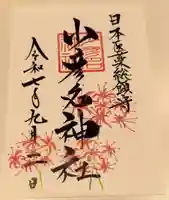 日本医薬総鎮守
少彦名神社
令和一年九月二日